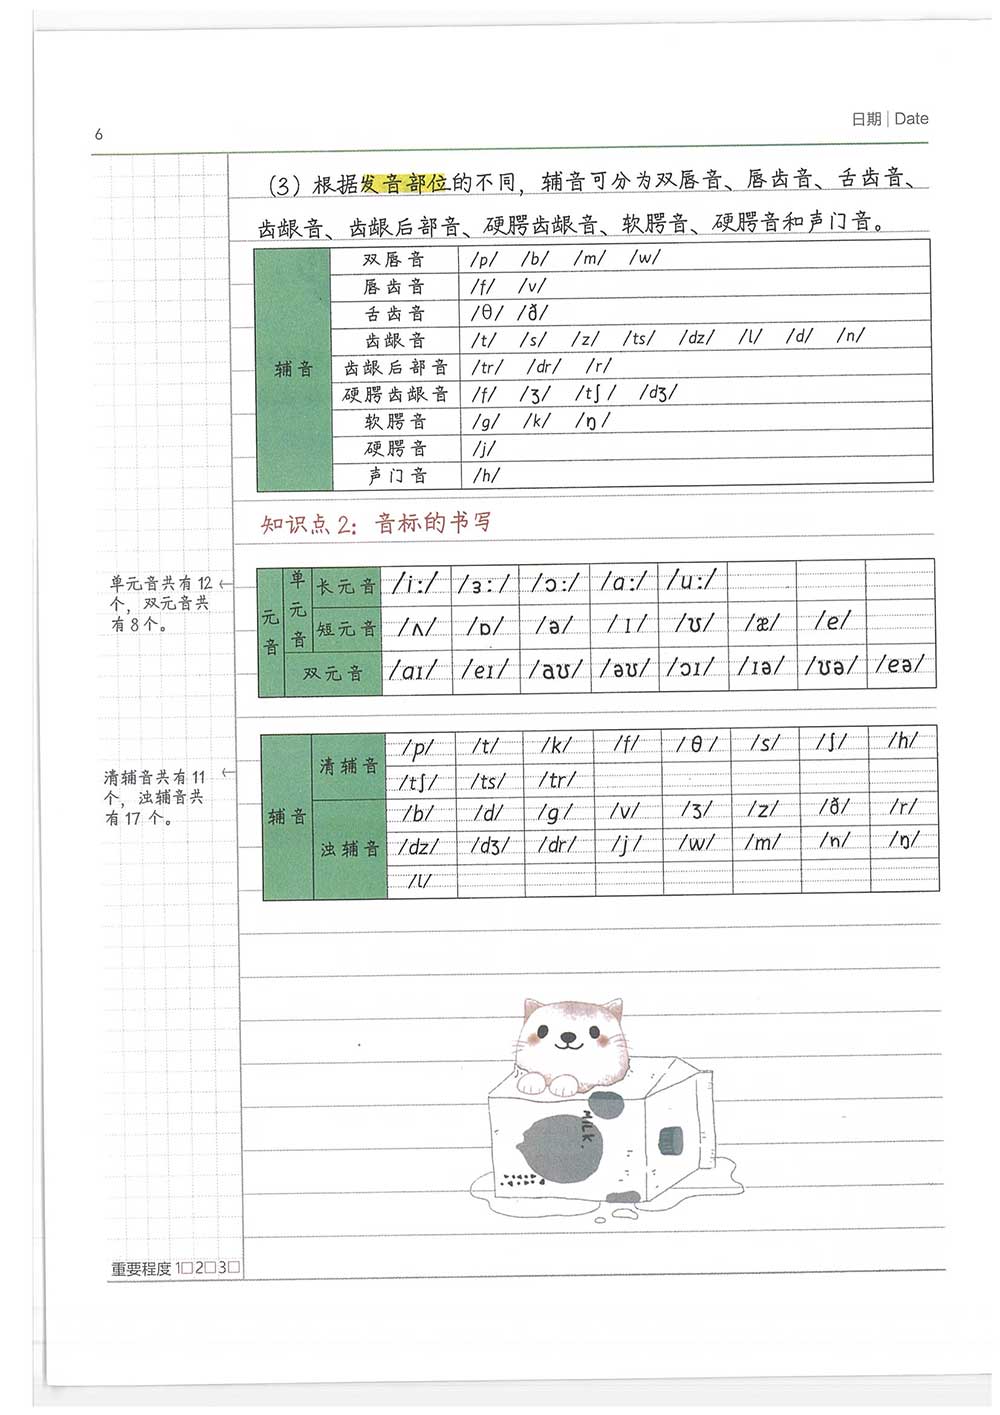 日期 | Date
6
（3）根据发音部位的不同，辅音可分为双唇音、唇齿音、舌齿音、
齿龈音、齿龈后部音、硬腭齿龈音、软腭音、硬腭音和声门音。
辅音
双唇音 /p/ /b/ /m/ /w/
唇齿音 /f/ /v/
舌齿音 /θ/ /ð/
齿龈音 /t/ /s/ /z/ /ts/ /dz/ /l/ /d/ /n/
齿龈后部音 /tr/ /dr/ /r/
硬腭齿龈音 /f/ /ʒ/ /tʃ/ /dʒ/
软腭音 /g/ /k/ /ŋ/
硬腭音 /j/
声门音 /h/
知识点2：音标的书写
单元音共有12
个，双元音共
有8个。
元音
单元音
长元音 /i:/ /ɜ:/ /ɔ:/ /ɑ:/ /u:/
短元音 /ʌ/ /ɒ/ /ə/ /ɪ/ /ʊ/ /æ/ /e/
双元音 /aɪ/ /eɪ/ /aʊ/ /əʊ/ /ɔɪ/ /ɪə/ /ʊə/ /eə/
清辅音共有11
个，浊辅音共
有17个。
辅音
清辅音 /p/ /t/ /k/ /f/ /θ/ /s/ /ʃ/ /h/
/tʃ/ /ts/ /tr/
浊辅音 /b/ /d/ /g/ /v/ /ʒ/ /z/ /ð/ /r/
/dz/ /dʒ/ /dr/ /j/ /w/ /m/ /n/ /ŋ/
/l/
MILK.
重要程度 1□2□3□